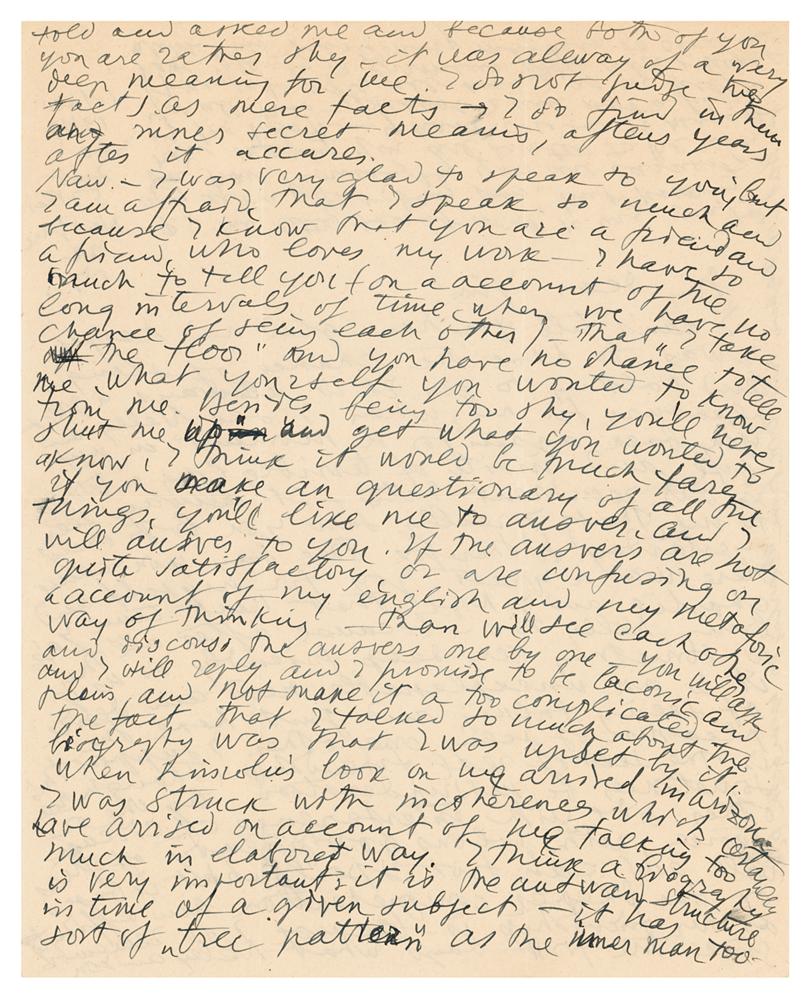 told and asked me and because both of you
you are rather shy – it was allway of a very
deep meaning for me. I do not judge
facts as mere facts – I do find in them
any secret means, afters years
after it accures.
Naw – I was very glad to speak to you, but
I am affraid, that I speak so much and
because I know that you are a friend and
a friend, who loves my work – I have so
much to tell you (on a account of the
long intervals of time, when we have no
chance of seing each other) – that I take
"the floor" and you have no chance to tell
me, what yourself you wanted to know
from me. Besides being too shy, you'll never
shut me up and get what you wanted to
aknow, I think it would be much
if you make an questionary of all the
things, you'll like me to answer. and I
will answer to you. If the answers are not
quite satisfactory or are confusing on
aaccount of my english and my metaforic
way of thinking – than will see each other
and discouss the answers one by one – you will ask
and I will reply and I promise to be laconic and
plain and not make it a too complicated and
the fact that I talked so much about the
biography was that I was upset by it.
When Lincoln's book on me arrived in Arizona
I was struck with incoherences which certainly
have arised on account of me talking too
much in elabored way. I think a biography
is very important, it is the structure
in time of a given subject – it has
sort of "tree pattern" as the inner man too-